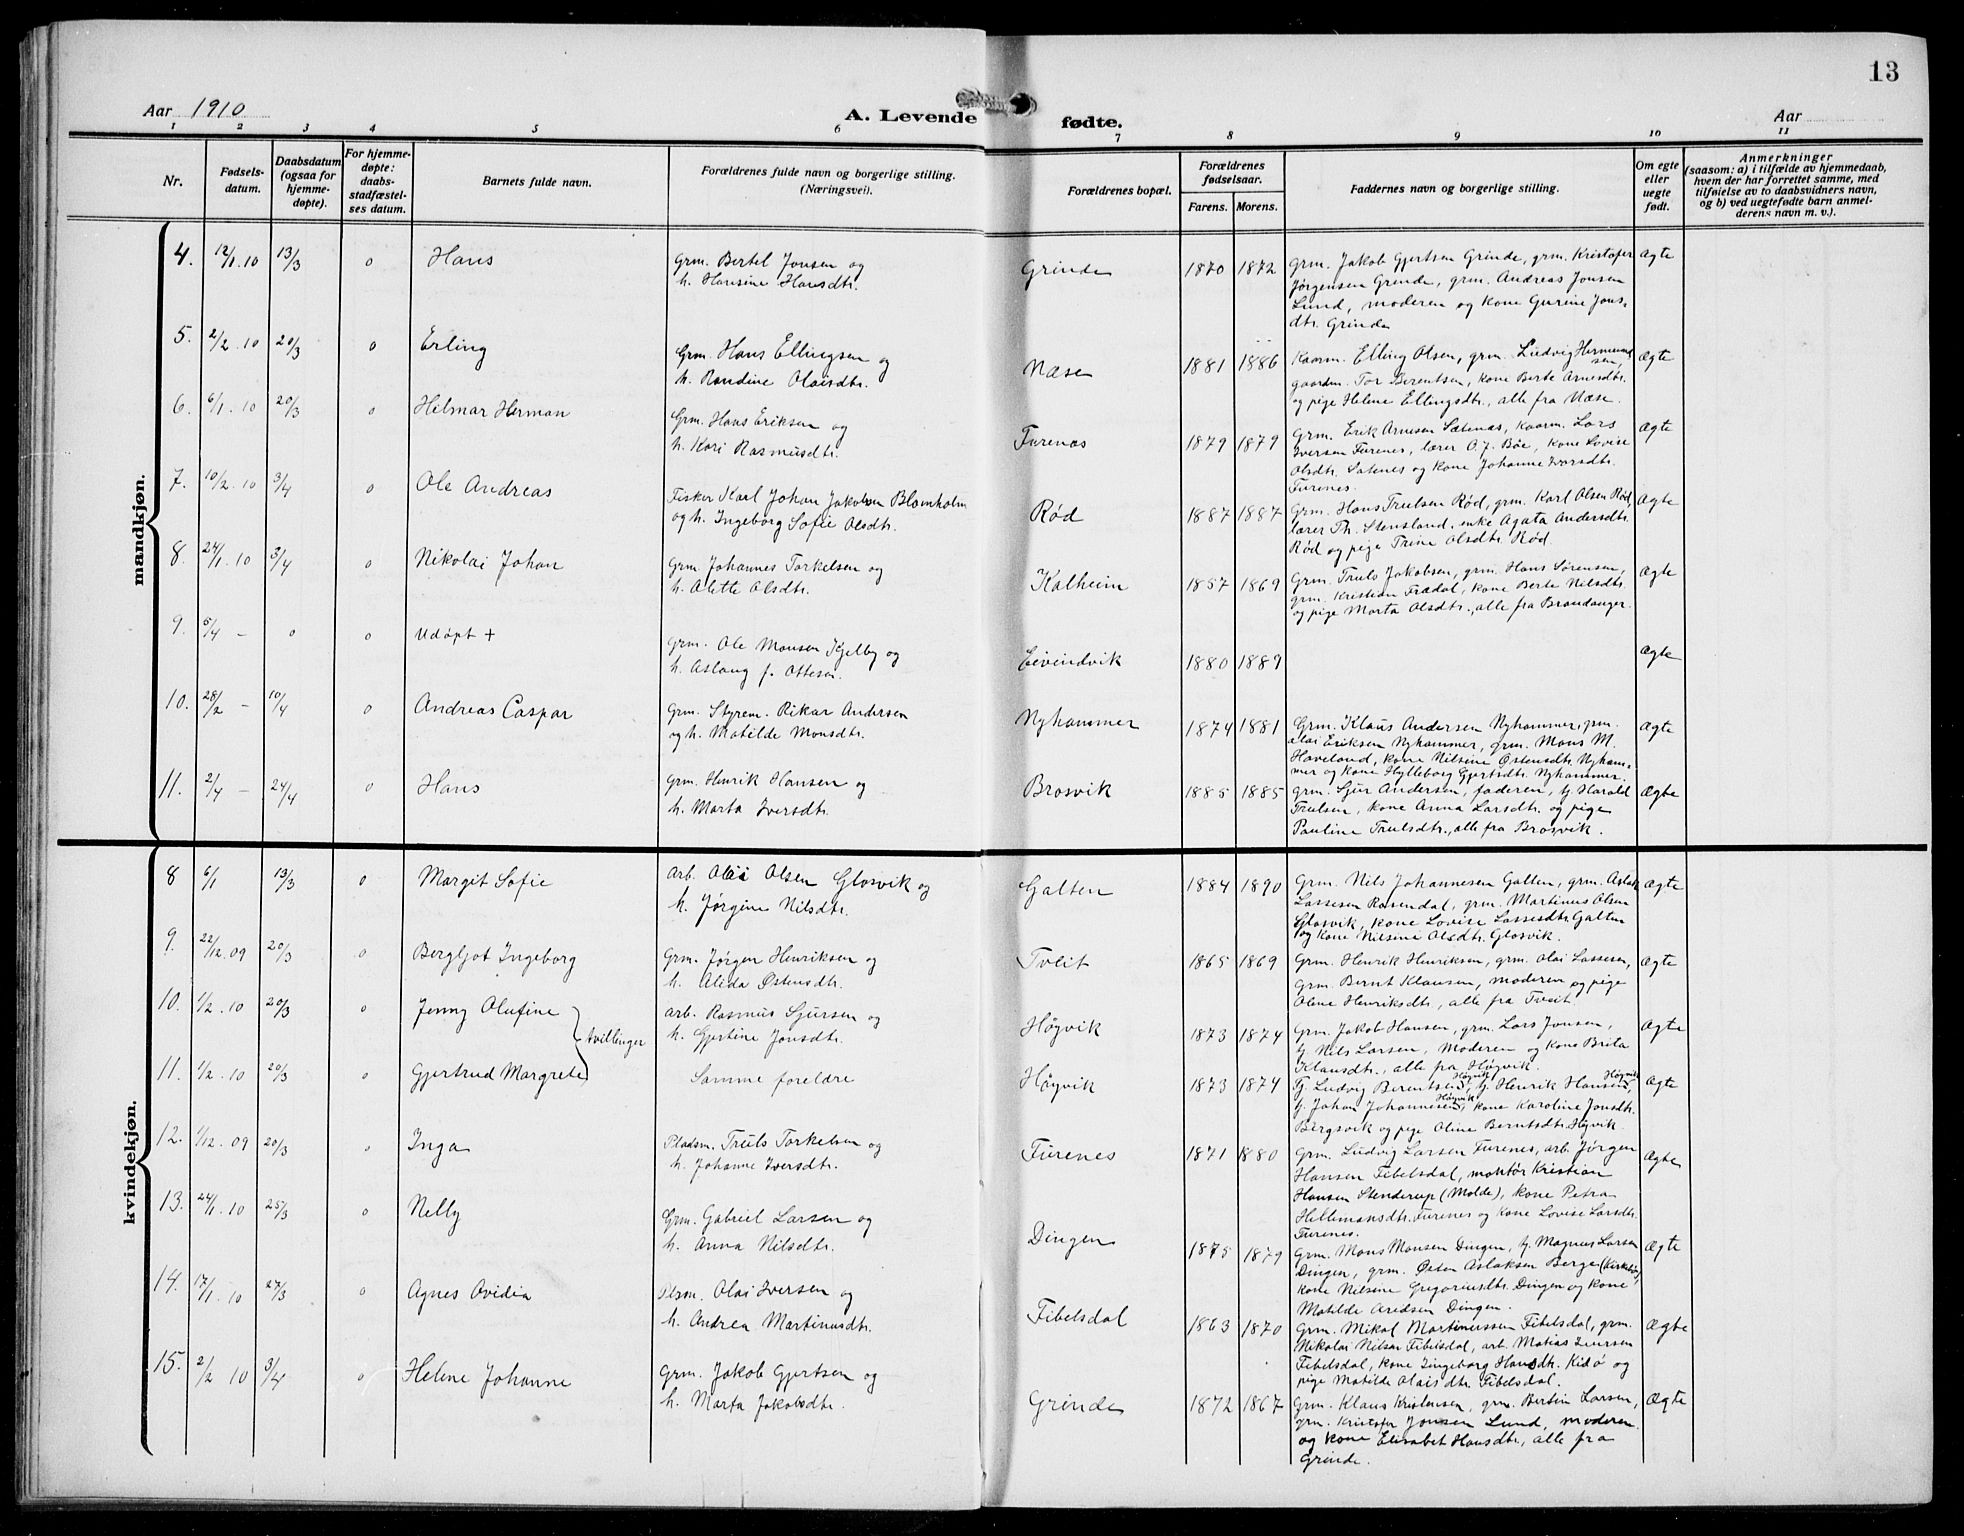 13
Aar 1910
A. Levende fødte.
Aar
1 2 3 4 5 6 7 8 9 10 11
Nr.
Fødsels-
datum.
Daabsdatum
(ogsaa for
hjemme-
døpte).
For hjemme-
døpte:
daabs-
stadfæstel-
ses datum.
Barnets fulde navn.
Forældrenes fulde navn og borgerlige stilling.
(Næringsvei).
Forældrenes bopæl.
Forældrenes
fødselsaar.
Farens. Morens.
Faddernes navn og borgerlige stilling.
Om egte
eller
uegte
født.
Anmerkninger
(saasom: a) i tilfælde av hjemmedaab,
hvem der har forrettet samme, med
tilføielse av to daabsvidners navn,
og b) ved uegtefødte barn anmel-
derens navn m. v.).
mandkjøn.
4. 12/1.10 13/3 o Hans
Grm. Bertel Jonsen og
h. Hansine Hansdtr.
Grinde 1870 1872
Grm. Jakob Gjertsen Grinde, grm. Kristofer
Jørgensen Grinde, grm. Andreas Jonsen
Lund, moderen og kone Gurine Jons-
dtr. Grinde
Ægte
5. 2/2.10 20/3 o Erling
Grm. Hans Ellingsen og
h. Randine Olaisdtr.
Næse 1881 1886
Kaarm. Elling Olsen, grm. Ludvig Hermund
sen,
gaardm. Tor Berentsen, kone Berte Arnesdtr.
og pige Helene Ellingsdtr., alle fra Næse.
Ægte
6. 6/1.10 20/3 o Hilmar Herman
Grm. Hans Eriksen og
h. Kari Rasmusdtr.
Furenes 1879 1879
Grm. Erik Arnesen Sætenæs, kaarm. Lars
Iversen Furenes, lærer O. J. Bøe, kone Lovise
Olsdtr. Satenes og kone Johanne Ivarsdtr.
Furenes.
Ægte
7. 10/2.10 3/4 o Ole Andreas
Fisker Karl Johan Jakobsen Blomholm
og h. Ingeborg Sofie Olsdtr.
Rød 1887 1887
Grm. Hans Trulsen Rød, grm. Karl Olsen Rød,
lærer Th. Stensland, enke Agata Andersdtr.
Rød og pige Trine Olsdtr. Rød.
Ægte
8. 24/1.10 3/4 o Nikolai Johan
Grm. Johannes Torkelsen og
h. Alette Olsdtr.
Kalheim 1857 1869
Grm. Truls Jakobsen, grm. Hans Sørensen,
grm. Kristian Tradal, kone Berte Nilsdtr.
og pige Marta Olsdtr., alle fra Brandanger.
Ægte
9. 5/4 - o o Udøpt +
Grm. Ole Monsen Kjelby og
h. Aslaug f. Ottesen.
Eivindvik 1880 1889
Ægte
10. 28/2 - 10/4 o Andreas Caspar
Grm. Styrem. Rikar Andersen
og h. Matilde Monsdtr.
Nyhammer 1874 1881
Grm. Klaus Andersen Nyhammer, grm.
Olai Eriksen Nyhammer, grm. Mons M.
Haveland, kone Nilsine Østensdtr. Nyham-
mer og kone Hylleborg Gjertsdtr. Nyhammer.
Ægte
11. 2/4 - 24/4 o Hans
Grm. Henrik Hansen og
h. Marta Iversdtr.
Brosvik 1885 1885
Grm. Sjur Andersen, faderen, tj. Harald
Trulsen, kone Anna Larsdtr. og pige
Pauline Trulsdtr., alle fra Brosvik.
Ægte
kvindekjøn.
8 6/1 13/3 o Margit Sofie
Arb. Olai Olsen Glosvik og
h. Jørgine Nilsdtr.
Galten 1884 1890
Grm. Nils Johannesen Galten, grm. Aslak
Lassesen Rosendal, grm. Martinus Olsen
Glosvik, kone Lovise Lassesdtr. Galten
og kone Nilsine Olsdtr. Glosvik.
Ægte
9. 22/12.09 20/3 o Bergljot Ingeborg
Grm. Jørgen Henriksen og
h. Alida Østensdtr.
Tveit 1865 1869
Grm. Henrik Henriksen, grm. Olai Lassesen,
grm. Bernt Klausen, moderen og pige
Oline Henriksdtr., alle fra Tveit.
Ægte
10. 1/2.10 20/3 o Jenny Olufine
tvillinger
Arb. Rasmus Sjursen og
h. Gjertine Jonsdtr.
Høgvik 1873 1874
Grm. Jakob Hansen, grm. Lars Jonsen,
tj. Nils Larsen, moderen og kone Brita
Klausdtr., alle fra Høgvik.
Ægte
11. 1/2.10 20/3 o Gjertrud Margrete
Samme foreldre
Høgvik 1873 1874
Tj. Ludvig Berentsen Høgvik, tj. Henrik Hansen Høgvik,
tj. Johan Johannesen Høgvik, kone Karoline Jonsdtr.
Bergsvik og pige Oline Berntsdtr. Høgvik.
Ægte
12. 1/12.09 20/3 o Inga
Pladsm. Truls Torkelsen og
h. Johanne Iversdtr.
Furenes 1871 1880
Grm. Ludvig Larsen Furenes, arb. Jørgen
Hansen Fibelsdal, montør Kristian
Hansen Stenderup (Molde), kone Petra
Hellimansdtr. Furenes og kone Lovise Larsdtr.
Furenes.
Ægte
13. 24/1.10 25/3 o Nelly
Grm. Gabriel Larsen og
h. Anna Nilsdtr.
Dingen 1875 1879
Grm. Mons Monsen Dingen, tj. Magnus Larsen
Dingen, grm. Østen Aslaksen Berge (Kirkebø),
kone Nilsine Gregoriusdtr. Dingen og kone
Matilde Aredsen Dingen.
Ægte
14. 17/1.10 27/3 o Agnes Ovidia
Plsm. Olai Iversen og
h. Andrea Martinusdtr.
Fibelsdal 1863 1870
Grm. Mikal Martinussen Fibelsdal, grm.
Nikolai Nilsen Fibelsdal, arb. Matias Iversen
Fibelsdal, kone Ingeborg Hansdtr. Kidø og
pige Matilde Olaisdtr. Fibelsdal.
Ægte
15. 2/2 10 3/4 o Helene Johanne
Grm. Jakob Gjertsen og
h. Marta Jakobsdtr.
Grinde 1872 1867
Grm. Klaus Kristensen, grm. Bertin Larsen,
grm. Kristofer Jonsen Lund, moderen
og kone Elisabet Hansdtr., alle fra
Grinde.
Ægte